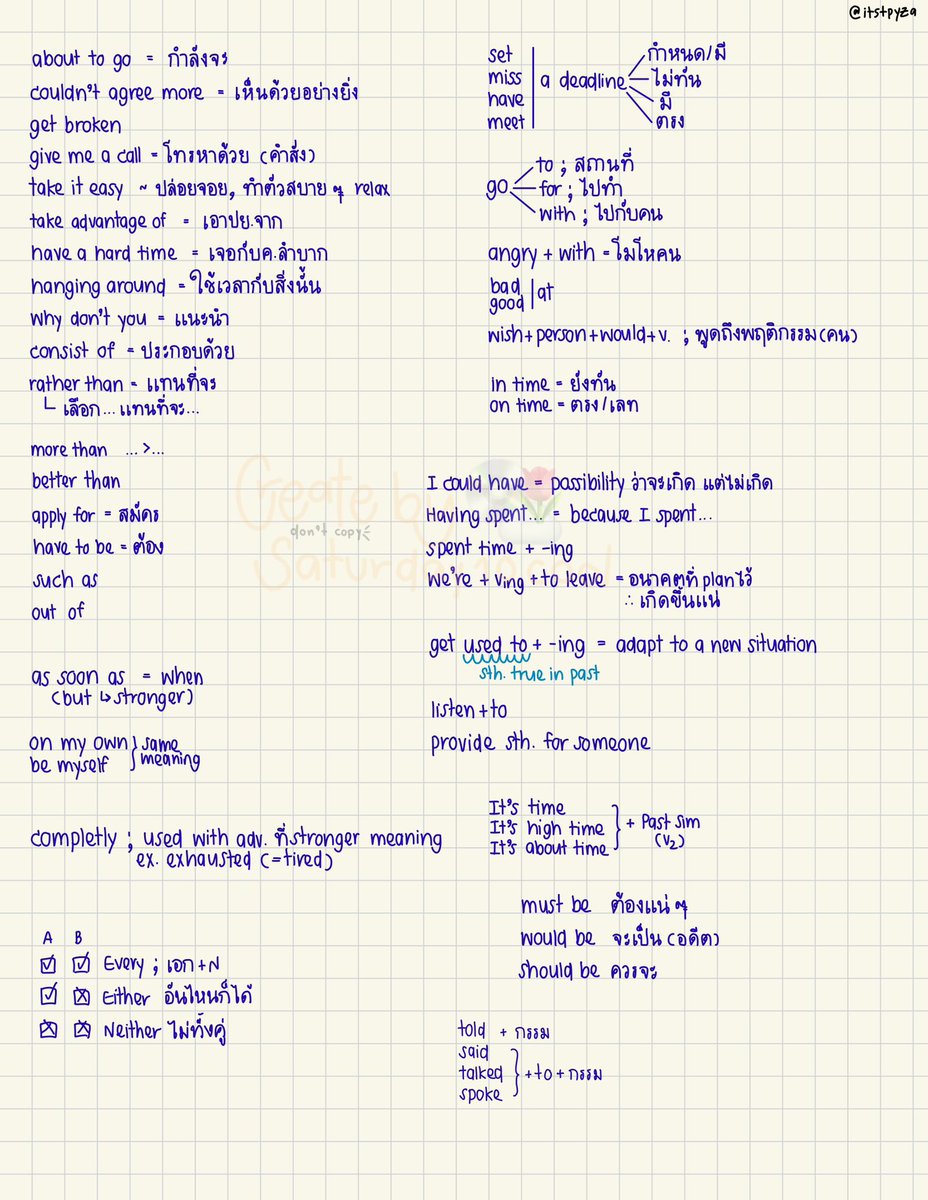 @itstpyza
about to go = กำลังจะ
couldn't agree more = เห็นด้วยอย่างยิ่ง
get broken
give me a call = โทรหาด้วย (คำสั่ง)
take it easy ~ ปล่อยจอย, ทำตัวสบาย ๆ relax
take advantage of = เอาปย.จาก
have a hard time = เจอกับค.ลำบาก
hanging around = ใช้เวลากับสิ่งนั้น
why don't you = แนะนำ
consist of = ประกอบด้วย
rather than = แทนที่จะ
└ เลือก... แทนที่จะ...
more than ...>...
better than
apply for = สมัคร
have to be = ต้อง
such as
out of
as soon as = when
(but ↳ stronger)
on my own } same
be myself } meaning
completly ; used with adv. ที่stronger meaning
ex. exhausted (=tired)
A B
☑ ☑ Every ; เอก+N
☑ ☒ Either อันไหนก็ได้
☒ ☒ Neither ไม่ทั้งคู่
set กำหนด/มี
miss ไม่ทัน
have a deadline มี
meet ตรง
to ; สถานที่
go for ; ไปทำ
with ; ไปกับคน
angry + with = โมโหคน
bad
good | at
wish+person+would+v. ; พูดถึงพฤติกรรม(คน)
in time = ยังทัน
on time = ตรง/เลท
I could have = possibility ว่าจะเกิด แต่ไม่เกิด
Having spent... = because I spent...
spent time + -ing
We're + ving + to leave = อนาคตที่ planไว้
∴ เกิดขึ้นแน่
get used to + -ing = adapt to a new situation
sth. true in past
listen + to
provide sth. for someone
It's time
It's high time } + Past sim
It's about time (v2)
must be ต้องแน่ ๆ
would be จะเป็น (อดีต)
should be ควรจะ
told + กรรม
said
talked } +to + กรรม
spoke
Create by
don't copy